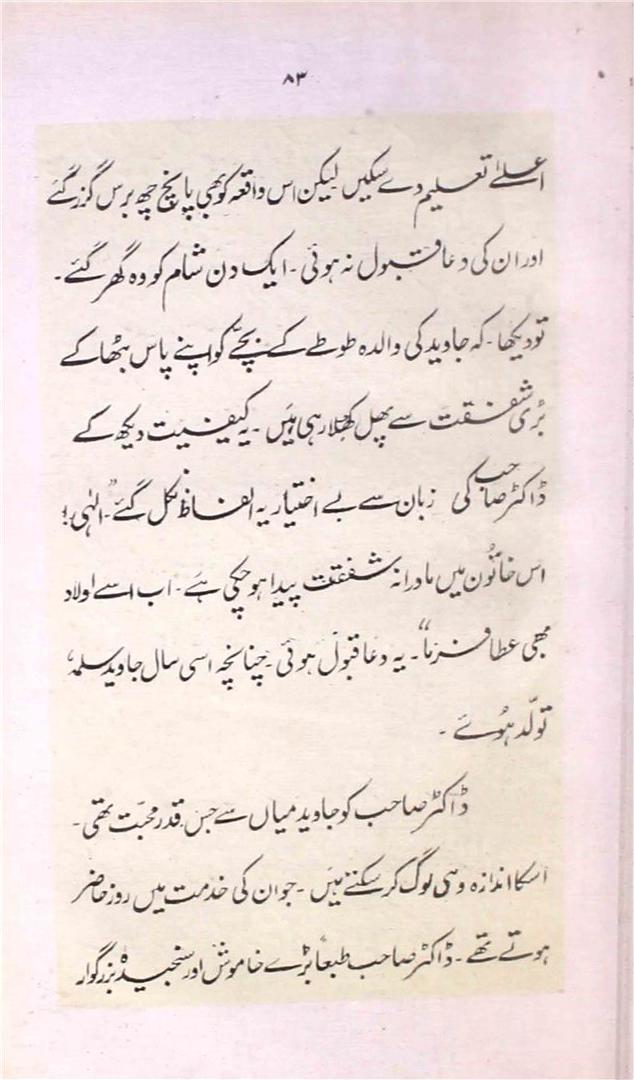 ۸۳
اعلےٰ تعلیم دے سکیں لیکن اس واقعہ کو بھی پانچ چھ برس گزر گئے
اور ان کی دعا قبول نہ ہوئی ۔ ایک دن شام کو وہ گھر گئے ۔
تو دیکھا ۔ کہ جاوید کی والدہ طوطے کے بچّے کو اپنے پاس بٹھا کے
بڑی شفقت سے پھل کھلا رہی ہیں ۔ یہ کیفیت دیکھ کے
ڈاکٹر صاحب کی زبان سے بے اختیار یہ الفاظ نکل گئے ۔ "الٰہی !
اس خاتُون میں مادرانہ شفقت پیدا ہو چکی ہے ۔ اب اسے اولاد
بھی عطا فرما" ۔ یہ دعا قبول ہوئی ۔ چنانچہ اسی سال جاوید سلمہٗ
تولّد ہُوئے ۔
ڈاکٹر صاحب کو جاوید میاں سے جس قدر محبّت تھی ۔
اسکا اندازہ وہی لوگ کر سکتے ہیں ۔ جو ان کی خدمت میں روز حاضر
ہوتے تھے ۔ ڈاکٹر صاحب طبعاً بڑے خاموش اور سنجیدہ بزرگوار